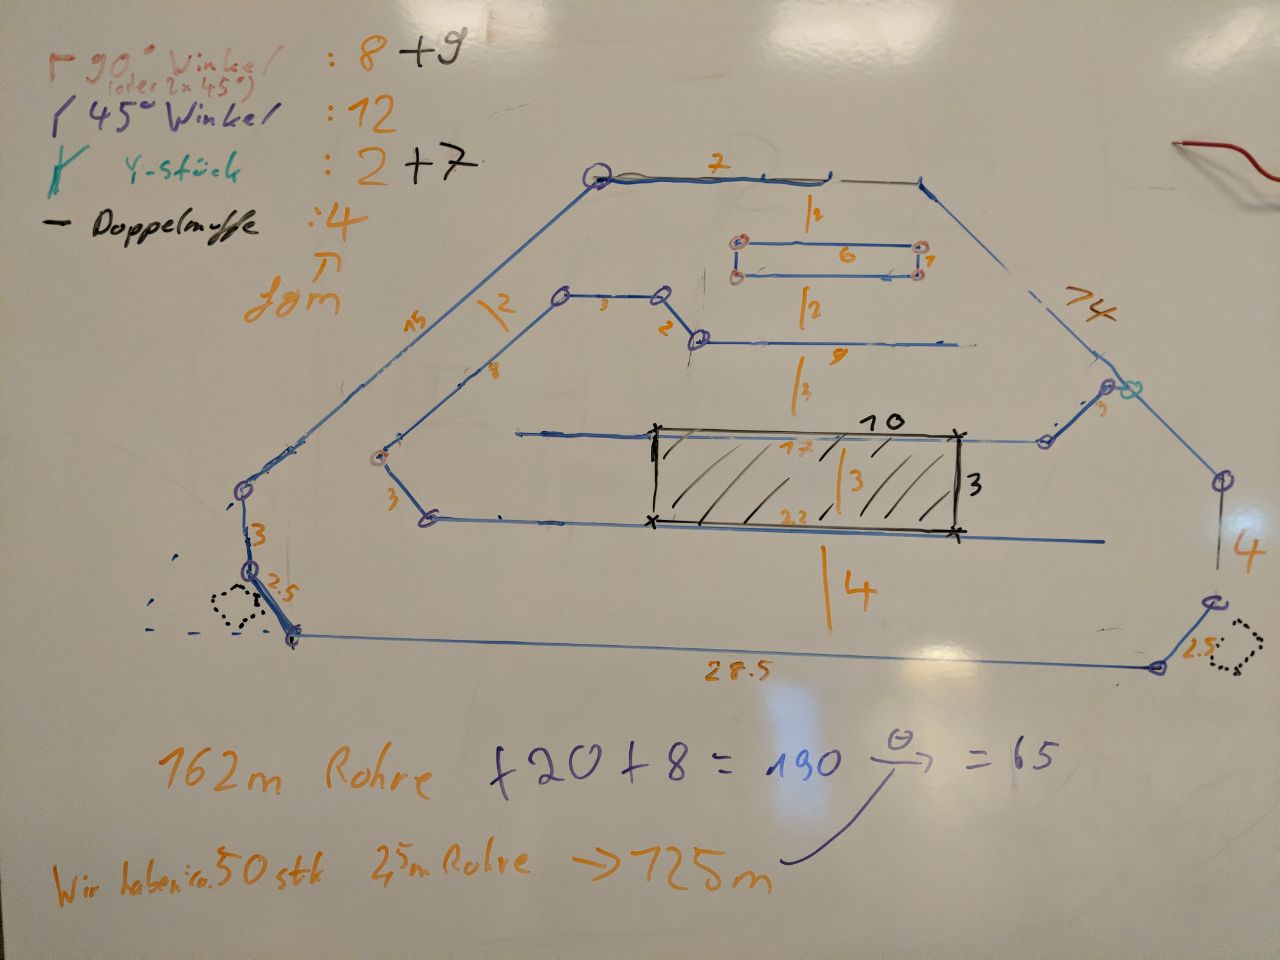 90° Winkel : 8 + 9
(oder 2x 45°)
45° Winkel : 12
Y-Stück : 2 + 7
— Doppelmuffe : 4
7
2
6
1
15
2
3
2
2
8
9
14
3
3
10
17
3
3
3
22
3
2.5
4
4
2.5
28.5
162m Rohre + 20 + 8 = 190 = 65
Wir haben ca. 50 stk 2,5m Rohre → 125m